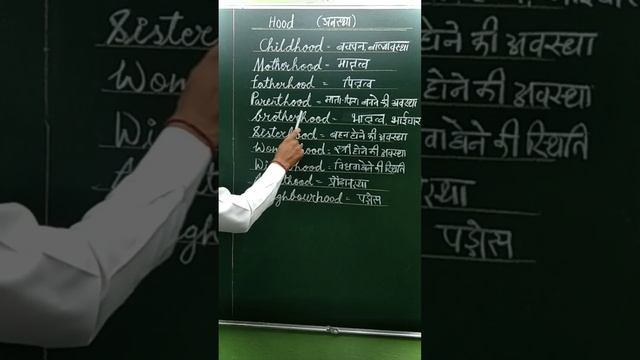 Hood (अवस्था)
Childhood = बचपन, बाल्यावस्था
Motherhood = मातृत्व
Fatherhood = पितृत्व
Parenthood = माता-पिता बनने की अवस्था
Brotherhood = भातृत्व, भाईचारा
Sisterhood = बहन होने की अवस्था
Wom hood = स्त्री होने की अवस्था
Wi hood = विधवा होने की स्थिति
hood =
ghbourhood = पड़ोस
Sister
होने की अवस्था
Wom
होने की स्थिति
पड़ोस